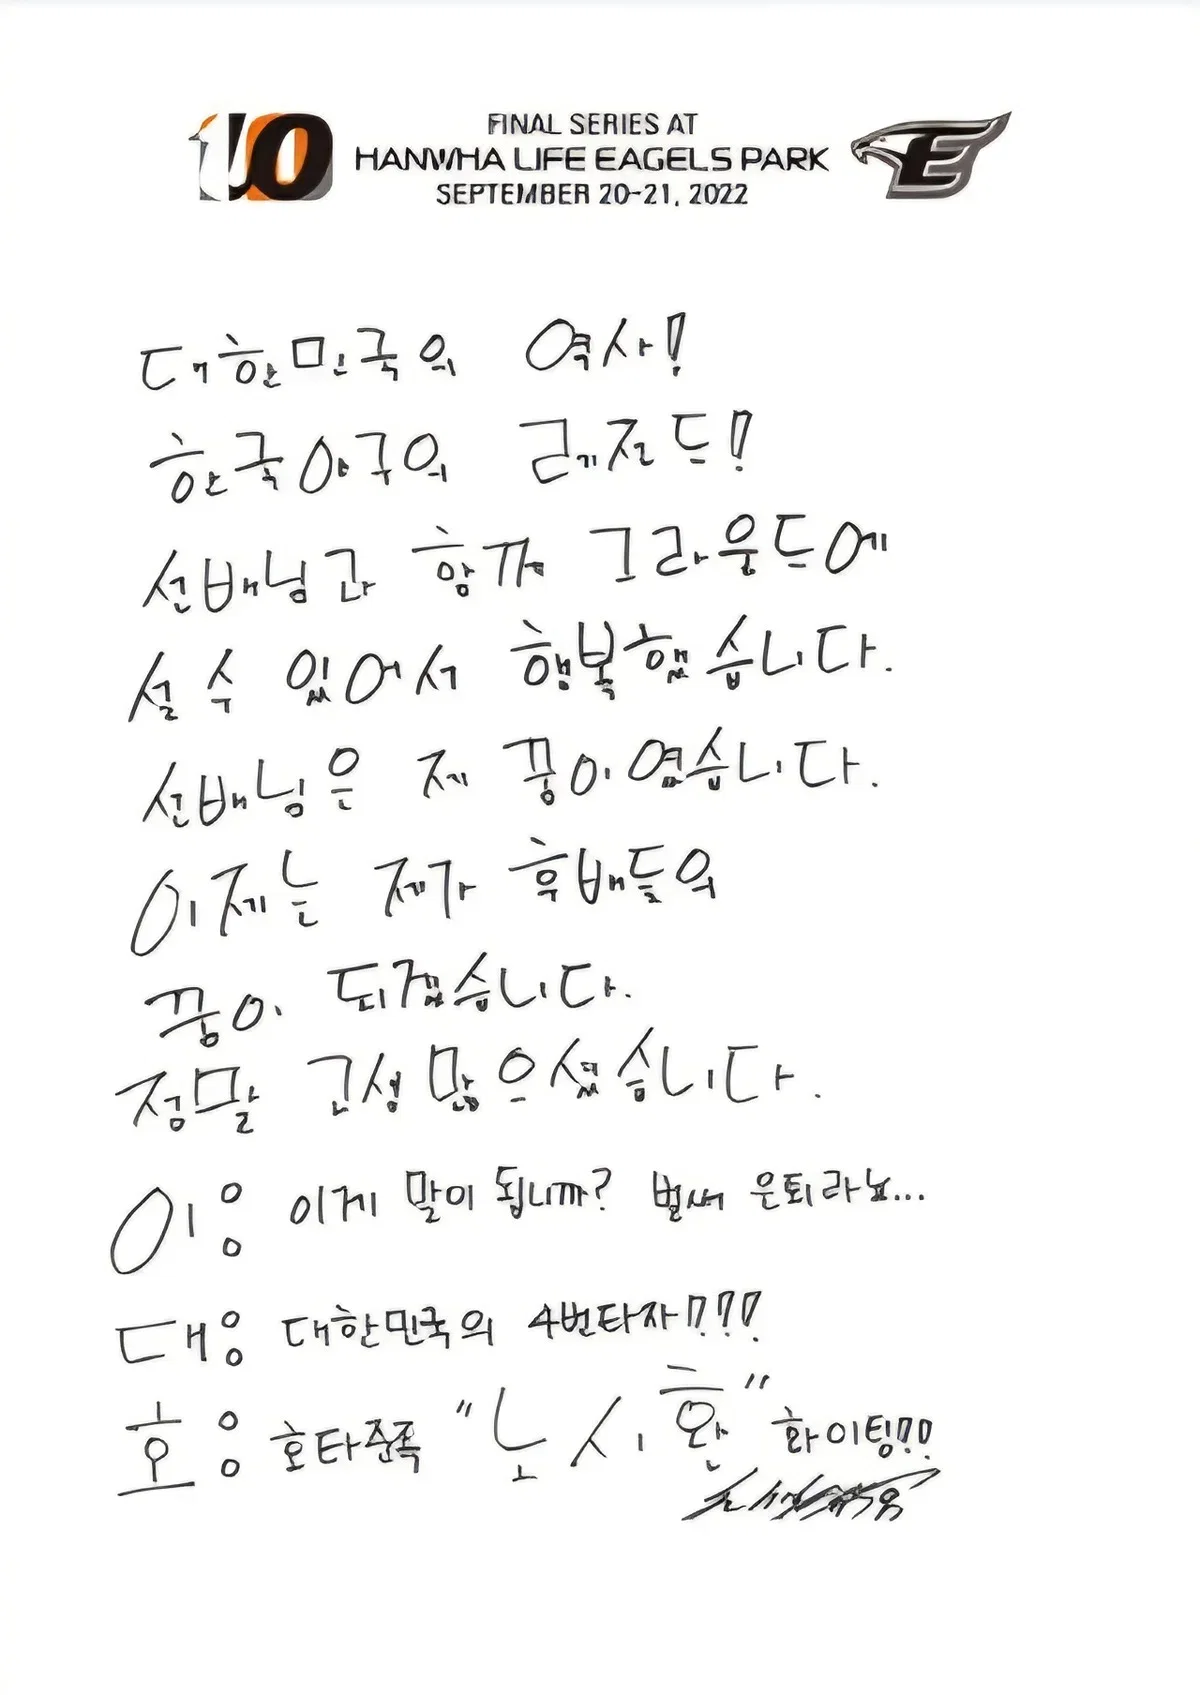 10
FINAL SERIES AT
HANWHA LIFE EAGELS PARK
SEPTEMBER 20-21, 2022
E
대한민국의 역사!
한국야구의 레전드!
선배님과 함께 그라운드에
설 수 있어서 행복했습니다.
선배님은 제 꿈이였습니다.
이제는 제가 후배들의
꿈이 되겠습니다.
정말 고생 많으셨습니다.
이: 이게 말이 됩니까? 벌써 은퇴라뇨...
대: 대한민국의 4번타자!???
호: 호타준족 "노시환" 화이팅!!